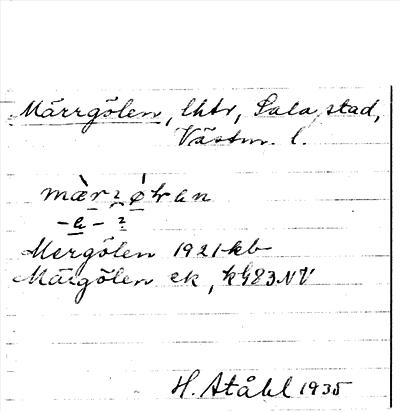 Märrgölen, lktr, Sala stad,
Västm. l.
Mergölen 1921 kb
Märgölen ek, k983NV
H. Ståhl 1935